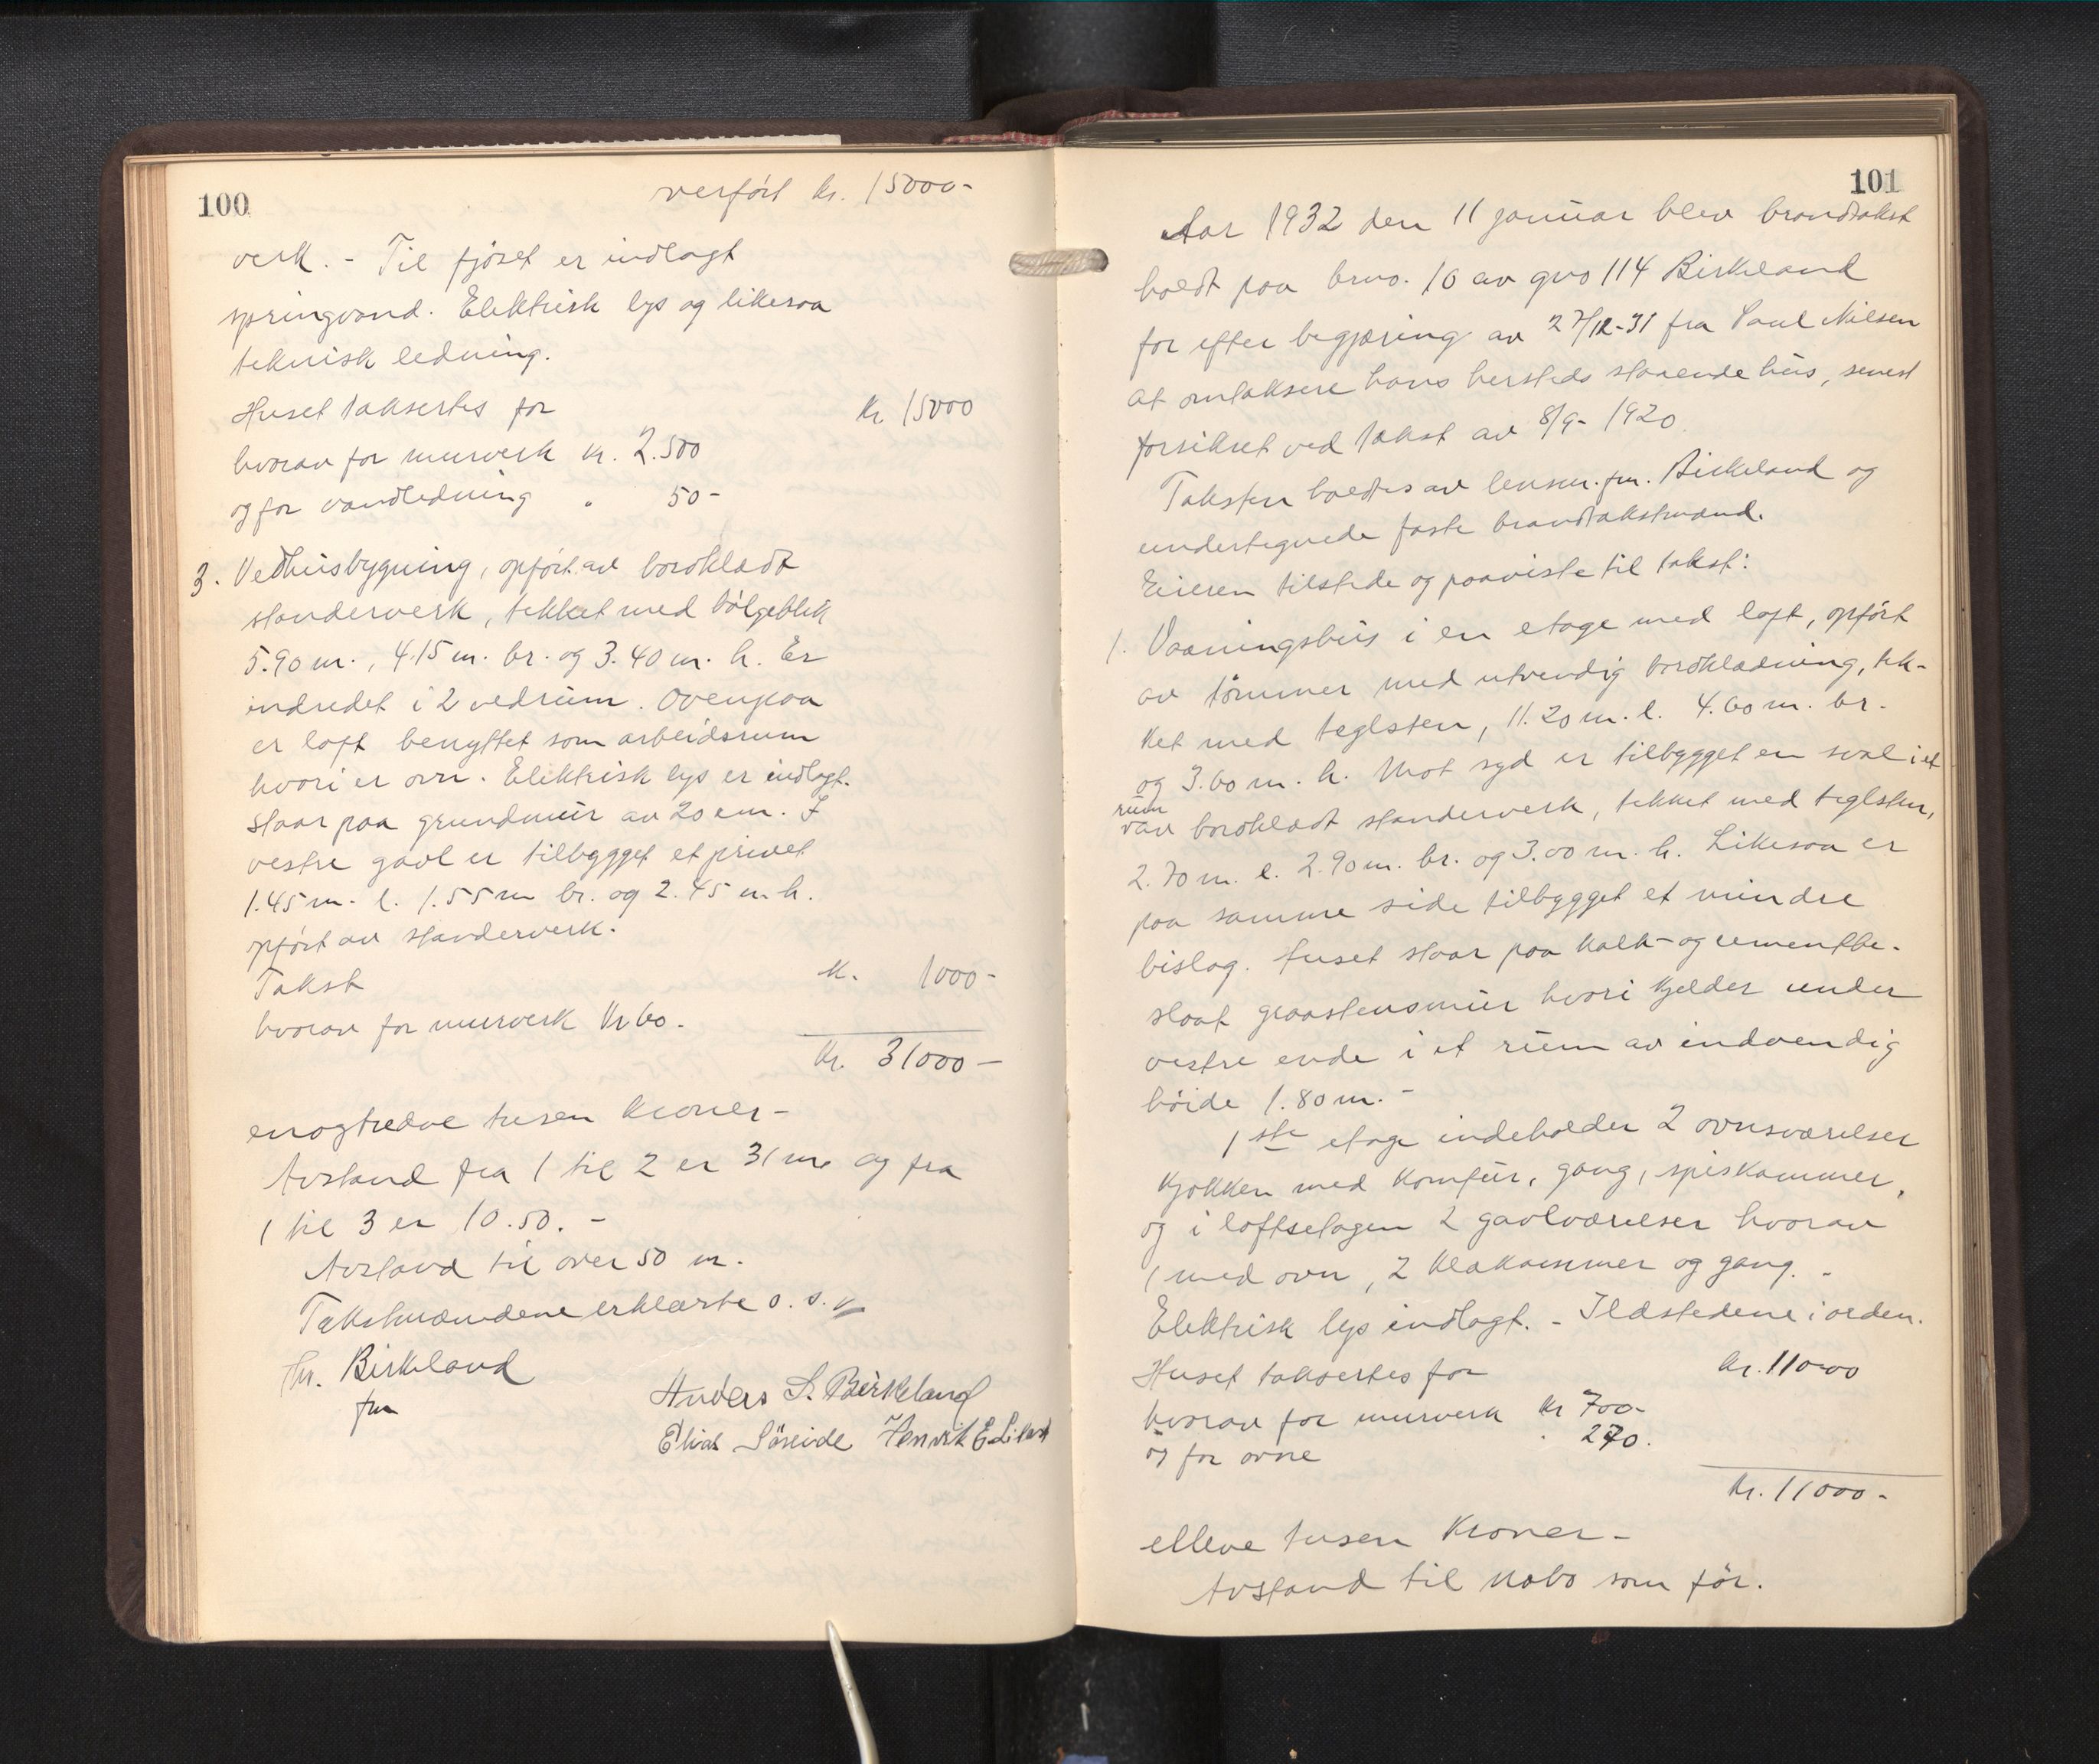 100
verført kr. 15000-
verk. - Til fjøset er indlagt
springvand. Elektrisk lys og likesaa
teknisk ledning.
Huset taksertes for kr 15000
hvorav for murverk kr. 2.500
og for vandledning " 50-
3. Vedhusbygning, opført av bordklædt
standerverk, tekket med bølgeblik
5.90 m., 4.15 m. br. og 3.40 m. h. Er
indredet i 2 vedrum. Ovenpaa
er loft benyttet som arbeidsrum
hvori er ovn. Elektrisk lys er indlagt.
Staar paa grundmur av 20 cm. I
vestre gavl er tilbygget et privet
1.45 m. l. 1.55 m br. og 2.45 m. h.
opført av standerverk.
Takst kr. 1000-
hvorav for murverk kr 60.
kr. 31000-
enogtredve tusen kroner-
Avstand fra 1 til 2 er 31 m. og fra
1 til 3 er 10.50. -
Avstand til over 50 m.
Takstmændene erklærte o.s.v.
Birkeland
fm
Anders S. Birkeland
Elias Søreide Henrik E.
101
Aar 1932 den 11 januar blev brandtakst
holdt paa brno. 10 av gno 114 Birkeland
for efter begjæring av 27/12-31 fra Paul Nilsen
at omtaksere hans hersteds staaende hus, senest
forsikret ved takst av 8/9- 1920.
Taksten holdtes av lensm. fm. Birkeland og
undertegnede faste brandtakstmænd.
Eieren tilstede og paaviste til takst:
1. Vaaningshus i en etage med loft, opført
av tømmer med utvendig bordklædning, tek-
ket med teglsten, 11.20 m. l. 4.60 m. br.
og 3.60 m. h. Mot syd er tilbygget en sval i et
rum
av bordklædt standerverk, tekket med teglsten,
2.70 m. l. 2.90 m. br. og 3.00 m. h. Likesaa er
paa samme side tilbygget et mindre
bislag. Huset staar paa kalk- og cementbe-
slaat graastensmur hvori kjelder under
vestre ende i et rum av indvendig
høide 1.80 m. -
1ste etage indeholder 2 ovnsværelser
kjøkken med komfur, gang, spiskammer,
og i loftsetagen 2 gavlværelser hvorav
1 med ovn, 2 klækammer og gang. -
Elektrisk lys indlagt. - Ildstedene i orden.
Huset taksertes for kr. 11000
hvorav for murverk kr 700-
og for ovne " 270.
kr. 11000-
elleve tusen kroner-
Avstand til nabo som før.